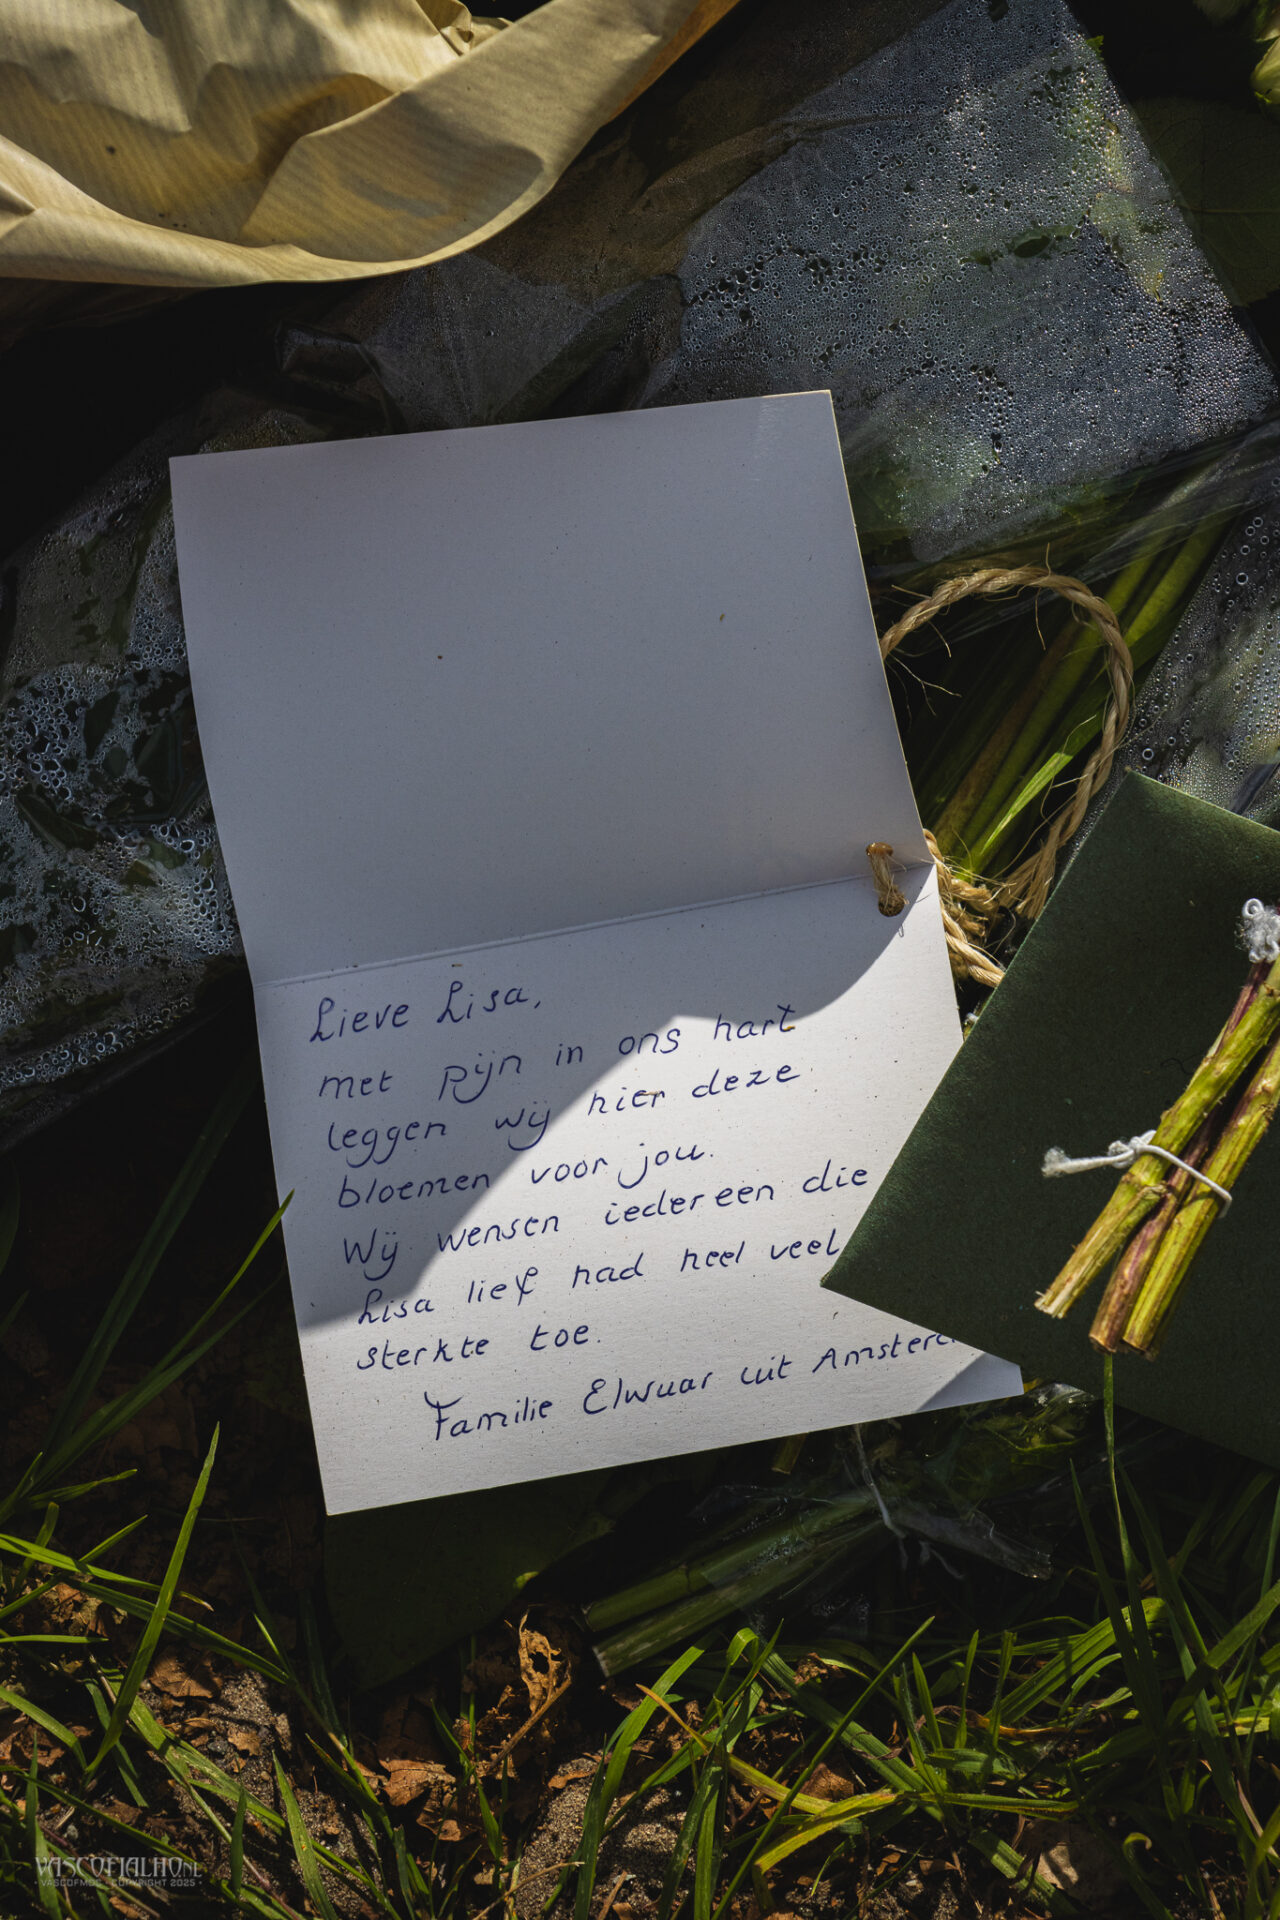 Lieve Lisa,
met pijn in ons hart
leggen wij hier deze
bloemen voor jou.
Wij wensen iedereen die
Lisa lief had heel veel
sterkte toe.
Familie Elwuar uit
VASCOFIALHO.NL
VASCOFMDC - COPYRIGHT 2025